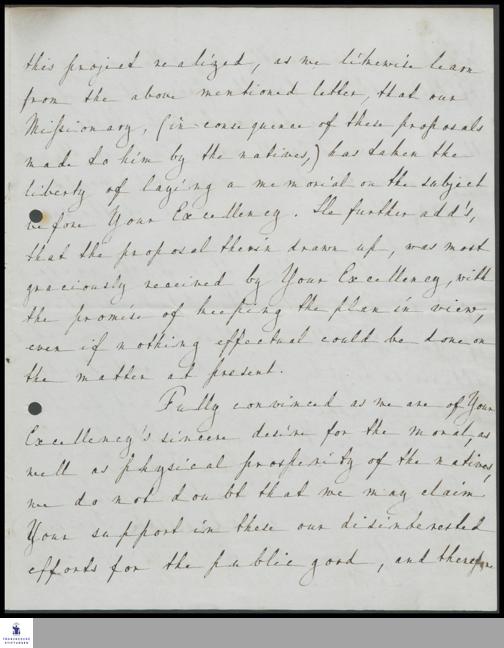 this project realized, as we likewise learn
from the above mentioned letter, that our
Missionary, (in consequence of these proposals
made to him by the natives,) has taken the
liberty of laying a memorial on the subject
before Your Excellency. He further add's,
that the proposal therin drawn up, was most
graciously received by Your Excellency, with
the promise of keeping the plan in view,
even if nothing effectual could be done on
the matter at present.
Fully convinced as we are of Your
Excellency's sincere desire for the moral, as
well as physical prosperity of the natives,
we do not doubt that we may claim
Your support in these our disinterested
efforts for the public good, and therefore
FRANCKESCHE
STIFTUNGEN